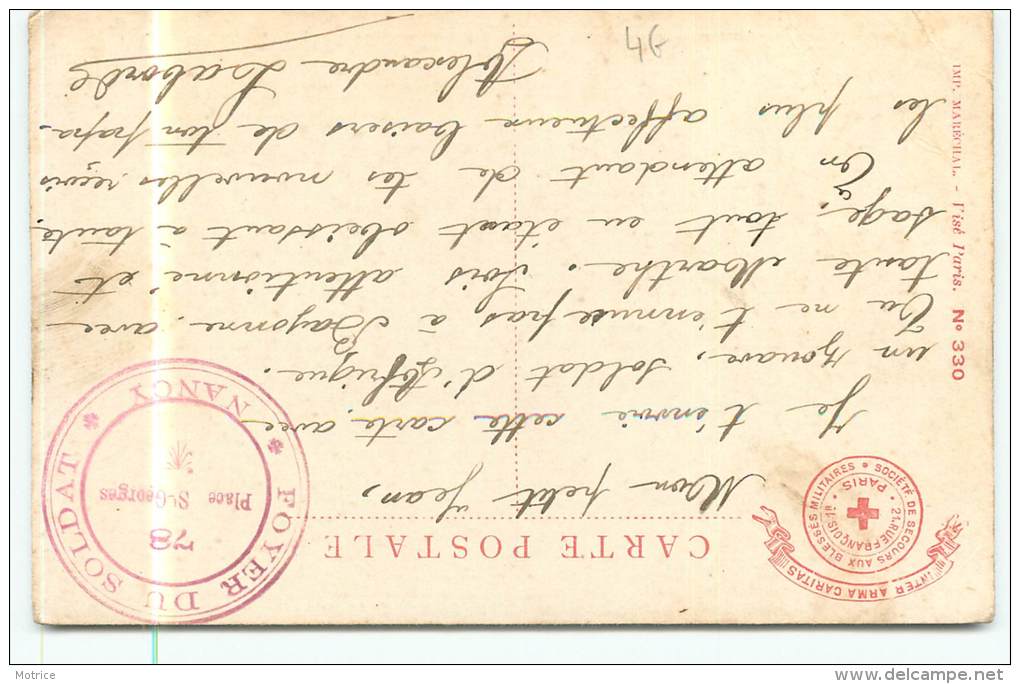 CARTE POSTALE
INTER ARMA CARITAS
SOCIÉTÉ DE SECOURS AUX BLESSÉS MILITAIRES
21, RUE FRANÇOIS 1er
PARIS
FOYER DU SOLDAT
NANCY
78
Place St-Georges
Mon petit Jean,
Je t'envoie cette carte avec
un zouave, soldat d'Afrique.
Tu ne t'ennuie pas à Bayonne, avec
tante Marthe. Sois attentionné et
sage tout en étant obéissant à tante.
En attendant de tes nouvelles reçois
les plus affectueux baisers de ton papa.
Alexandre Laborde
IMP. MARÉCHAL. - Visé Paris. No 330
4G
Motrice
www.delcampe.net